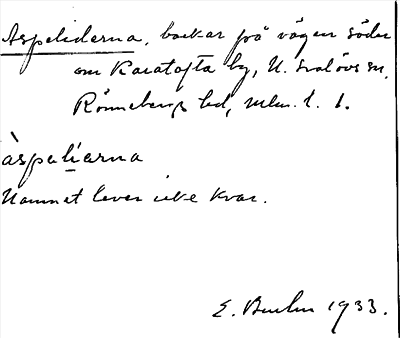 Aspeliderna, backar på vägen söder
om Karatofta by, N. Svalövs sn,
Rönnebergs hd, Mlm. l. 1.
àspelíarna
Namnet lever icke kvar.
E. 1933.